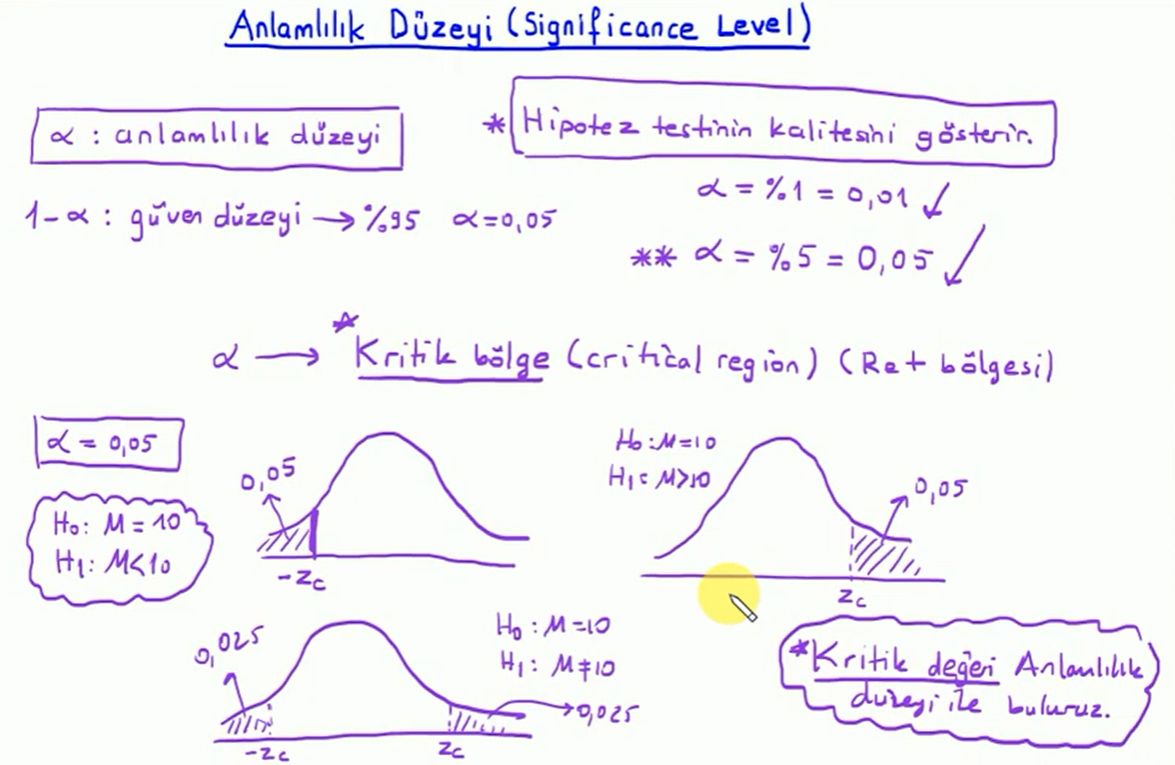 Anlamlılık Düzeyi (Significance Level)
α : anlamlılık düzeyi
* Hipotez testinin kalitesini gösterir.
1-α : güven düzeyi → %95 α=0,05
α = %1 = 0,01
** α = %5 = 0,05
α → * Kritik bölge (critical region) (Ret bölgesi)
α = 0,05
H₀: M = 10
H₁: M<10
0,05
-Zc
H₀: M=10
H₁: M>10
0,05
Zc
0,025
-Zc
Zc
0,025
H₀: M=10
H₁: M≠10
*Kritik değeri Anlamlılık
düzeyi ile buluruz.